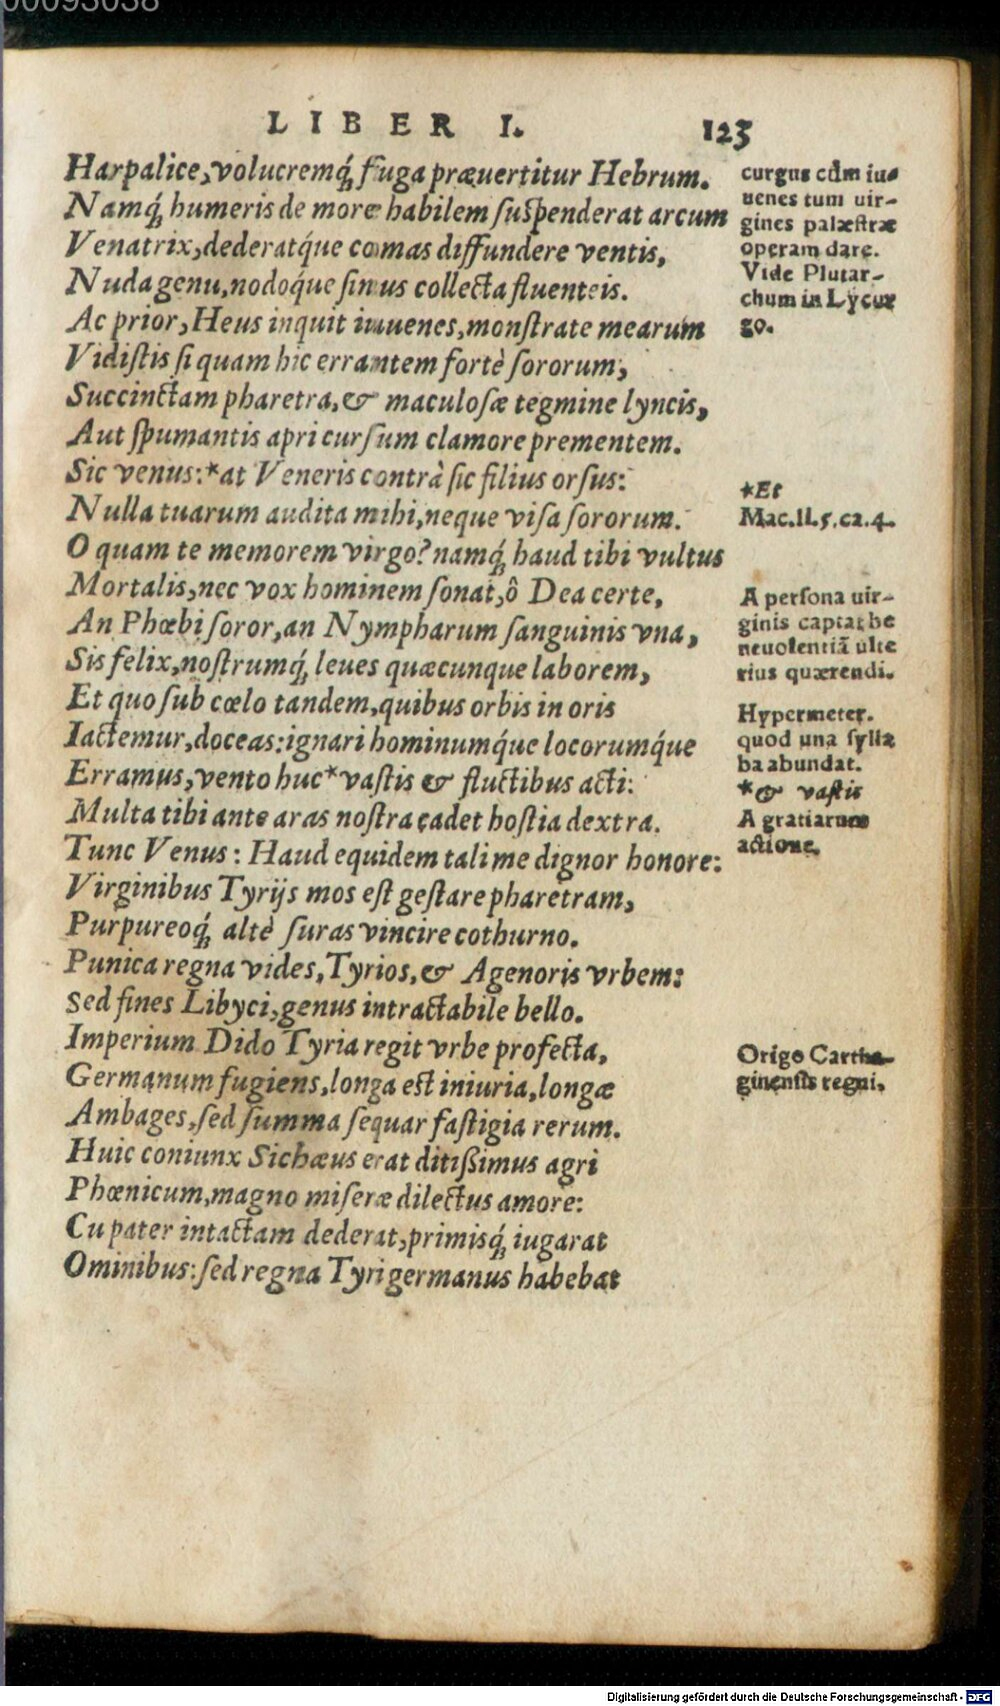 00093038
LIBER I. 123
Harpalice, volucremq́; fuga præuertitur Hebrum.
Namq́; humeris de more habilem ſuſpenderat arcum
Venatrix, dederatq́ue comas diffundere ventis,
Nuda genu, nodoq́ue ſinus collecta fluenteis.
Ac prior, Heus inquit iuuenes, monſtrate mearum
Vidiſtis ſi quam hic errantem fortè ſororum,
Succinctam pharetra, & maculoſæ tegmine lyncis,
Aut ſpumantis apri curſum clamore prementem.
Sic venus:*at Veneris contrà ſic filius orſus:
Nulla tuarum audita mihi, neque viſa ſororum.
O quam te memorem virgo? namq́; haud tibi vultus
Mortalis, nec vox hominem ſonat, ô Dea certe,
An Phœbi ſoror, an Nympharum ſanguinis vna,
Sis felix, noſtrumq́; leues quæcunque laborem,
Et quo ſub cœlo tandem, quibus orbis in oris
Iactemur, doceas: ignari hominumq́ue locorumq́ue
Erramus, vento huc*vaſtis & fluctibus acti:
Multa tibi ante aras noſtra cadet hoſtia dextra.
Tunc Venus: Haud equidem tali me dignor honore:
Virginibus Tyrijs mos eſt geſtare pharetram,
Purpureoq́; altè ſuras vincire cothurno.
Punica regna vides, Tyrios, & Agenoris vrbem:
Sed fines Libyci, genus intractabile bello.
Imperium Dido Tyria regit vrbe profecta,
Germanum fugiens, longa eſt iniuria, longæ
Ambages, ſed ſumma ſequar faſtigia rerum.
Huic coniunx Sichæus erat ditißimus agri
Phœnicum, magno miſeræ dilectus amore:
Cu pater intactam dederat, primisq́; iugarat
Ominibus: ſed regna Tyri germanus habebat
curgus cùm iu-
uenes tum uir-
gines palæſtræ
operam dare.
Vide Plutar-
chum in Lycur
go.
*Et
Mac.li.5.ca.4.
A perſona uir-
ginis captat be
neuolentiã ulte
rius quærendi.
Hypermeter.
quod una ſylla
ba abundat.
*& vaſtis
A gratiarum
actione.
Origo Cartha-
ginenſis regni.
Digitalisierung gefördert durch die Deutsche Forschungsgemeinschaft - DFG